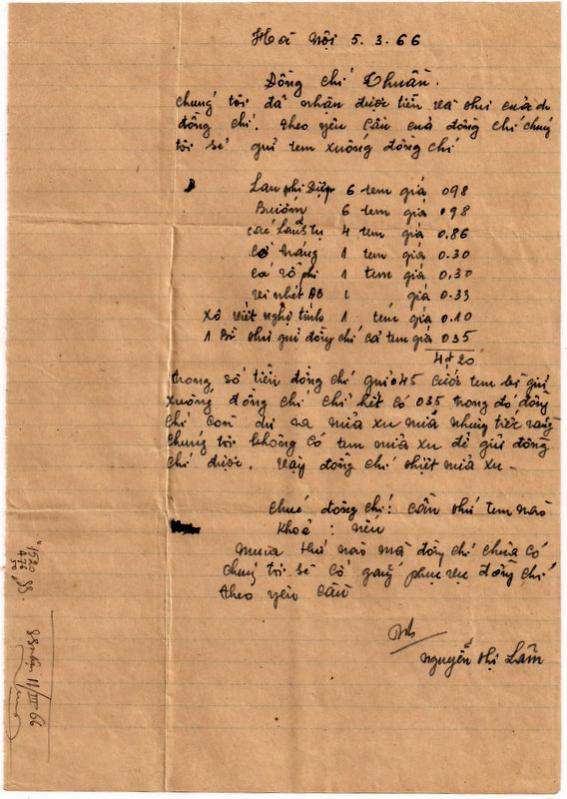 Hà Nội 5.3.66
Đồng chí Thuần.
chúng tôi đã nhận được tiền và thư của
đồng chí. theo yêu cầu của đồng chí chúng
tôi sẽ gửi tem xuống đồng chí
Lan phi Điệp 6 tem giá 098
Bươm 6 tem giá 098
các 4 tem giá 0.86
1 tem giá 0.30
cá rô phi 1 tem giá 0.30
1 giá 0.33
Xô viết nghệ tĩnh 1 tem giá 0.10
1 Bì thư gửi đồng chí cả tem giá 035
4đ20
trong số tiền đồng chí gửi 045 cước tem gửi
xuống đồng chí chỉ hết có 035 trong đó đồng
chí còn dư ra nửa xu nữa nhưng tiếc rằng
chúng tôi không có tem nửa xu để gửi đồng
chí được. vậy đồng chí thiệt nửa xu -
chúc đồng chí: cần thứ tem nào
khoẻ: nếu
mua thứ nào mà đồng chí chưa có
chúng tôi sẽ cố gắng phục vụ đồng chí
theo yêu cầu
Nguyễn thị Lâm
11/III 66